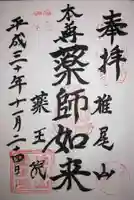 奉拝
椎尾山
本尊
薬師如来
薬王院
平成二十年十月二十四日